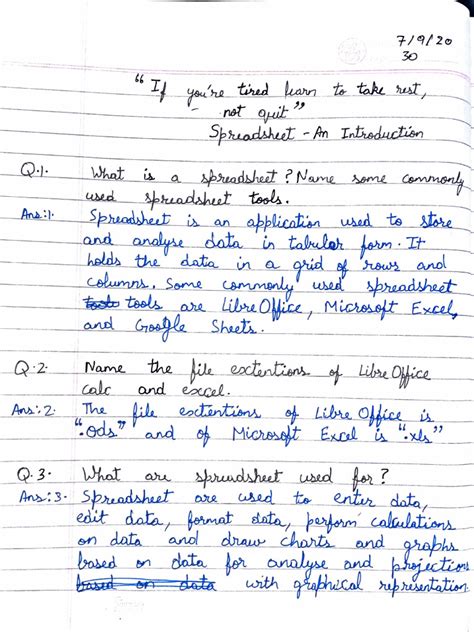 7/9/20
30
"If you're tired learn to take rest,
not quit"
Spreadsheet - An Introduction
Q.1. What is a spreadsheet? Name some commonly
used spreadsheet tools.
Ans:1. Spreadsheet is an application used to store
and analyse data in tabular form. It
holds the data in a grid of rows and
columns. Some commonly used spreadsheet
tools tools are Libre Office, Microsoft Excel,
and Google Sheets.
Q.2. Name the file extentions of Libre Office
calc and excel.
Ans:2. The file extentions of Libre Office is
".ods" and of Microsoft Excel is ".xls"
Q.3. What are spreadsheet used for?
Ans:3. Spreadsheet are used to enter data,
edit data, format data, perform calculations
on data and draw charts and graphs
based on data for analyse and projections
based on data with graphical representation.